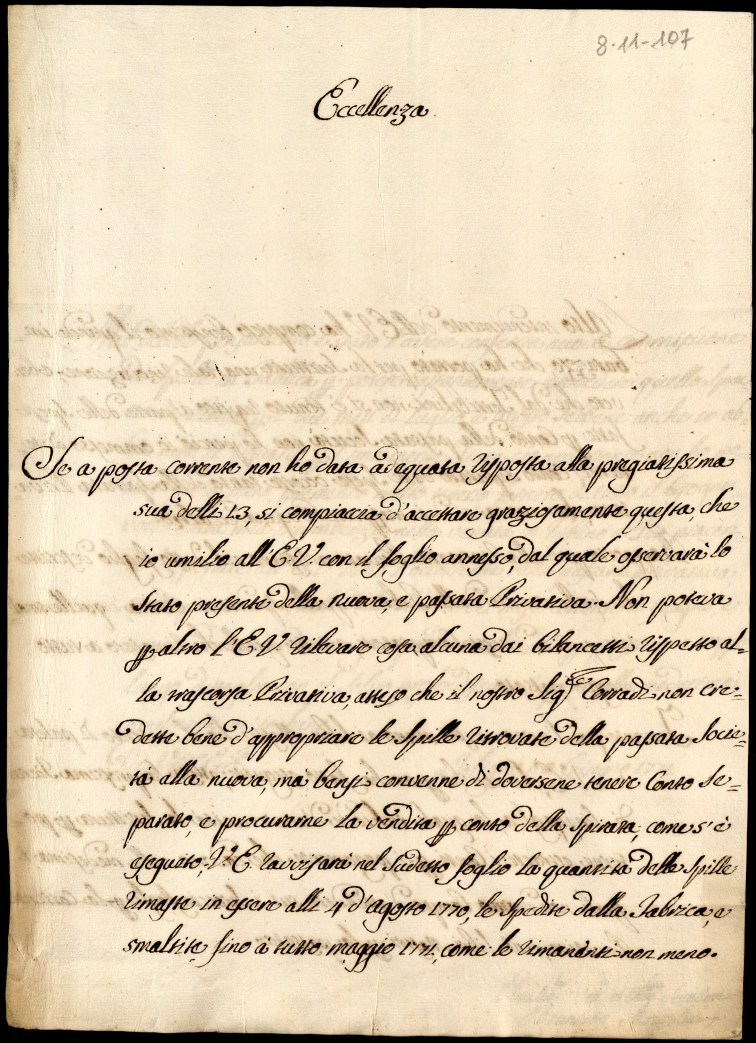 8-11-107
Eccellenza
Se a posta corrente non ho data adequata risposta alla pregiatissima
sua delli 13, si compiaccia d'accettare graziosamente questa, che
io umilio all'E.V. con il foglio annesso, dal quale osservarà lo
stato presente della nuova, e passata Privativa. Non poteva
per altro l'E.V. rilevare cosa alcuna dai bilancetti rispetto al=
la trascorsa Privativa, atteso che il nostro Sigre Corradi non cre=
dette bene d'appropriare le spille ritrovate della passata Socie=
tà alla nuova, mà bensi convenne di doversene tenere Conto se=
parato, e procurarne la vendita per conto della spirata, come s'è
eseguito; V.E. ravvisarà nel sudetto foglio la quantità delle spille
rimaste in essere alli 4 d'agosto 1770, le spedite dalla Fabrica, e
smaltite fino à tutto maggio 1771, come le rimanenti non meno.